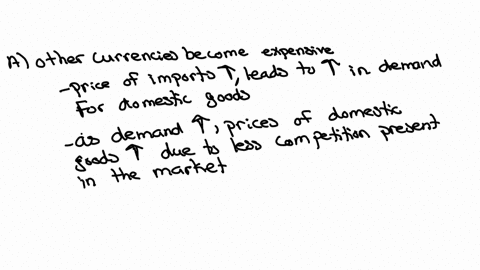 A) other currencies become expensive
-price of imports ↑, leads to ↑ in demand
for domestic goods
-as demand ↑, prices of domestic
goods ↑ due to less competition present
in the market